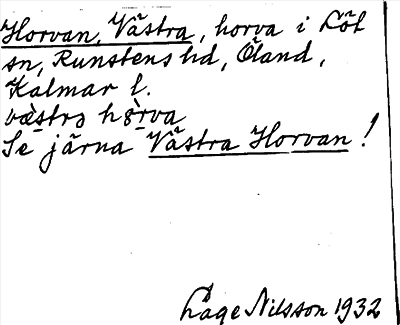 Horvan, Västra, horva i Löt
sn, Runstens hd, Öland,
Kalmar l.
væ̀stra hòrva
Se järna Västra Horvan!
Lage Nilsson 1932